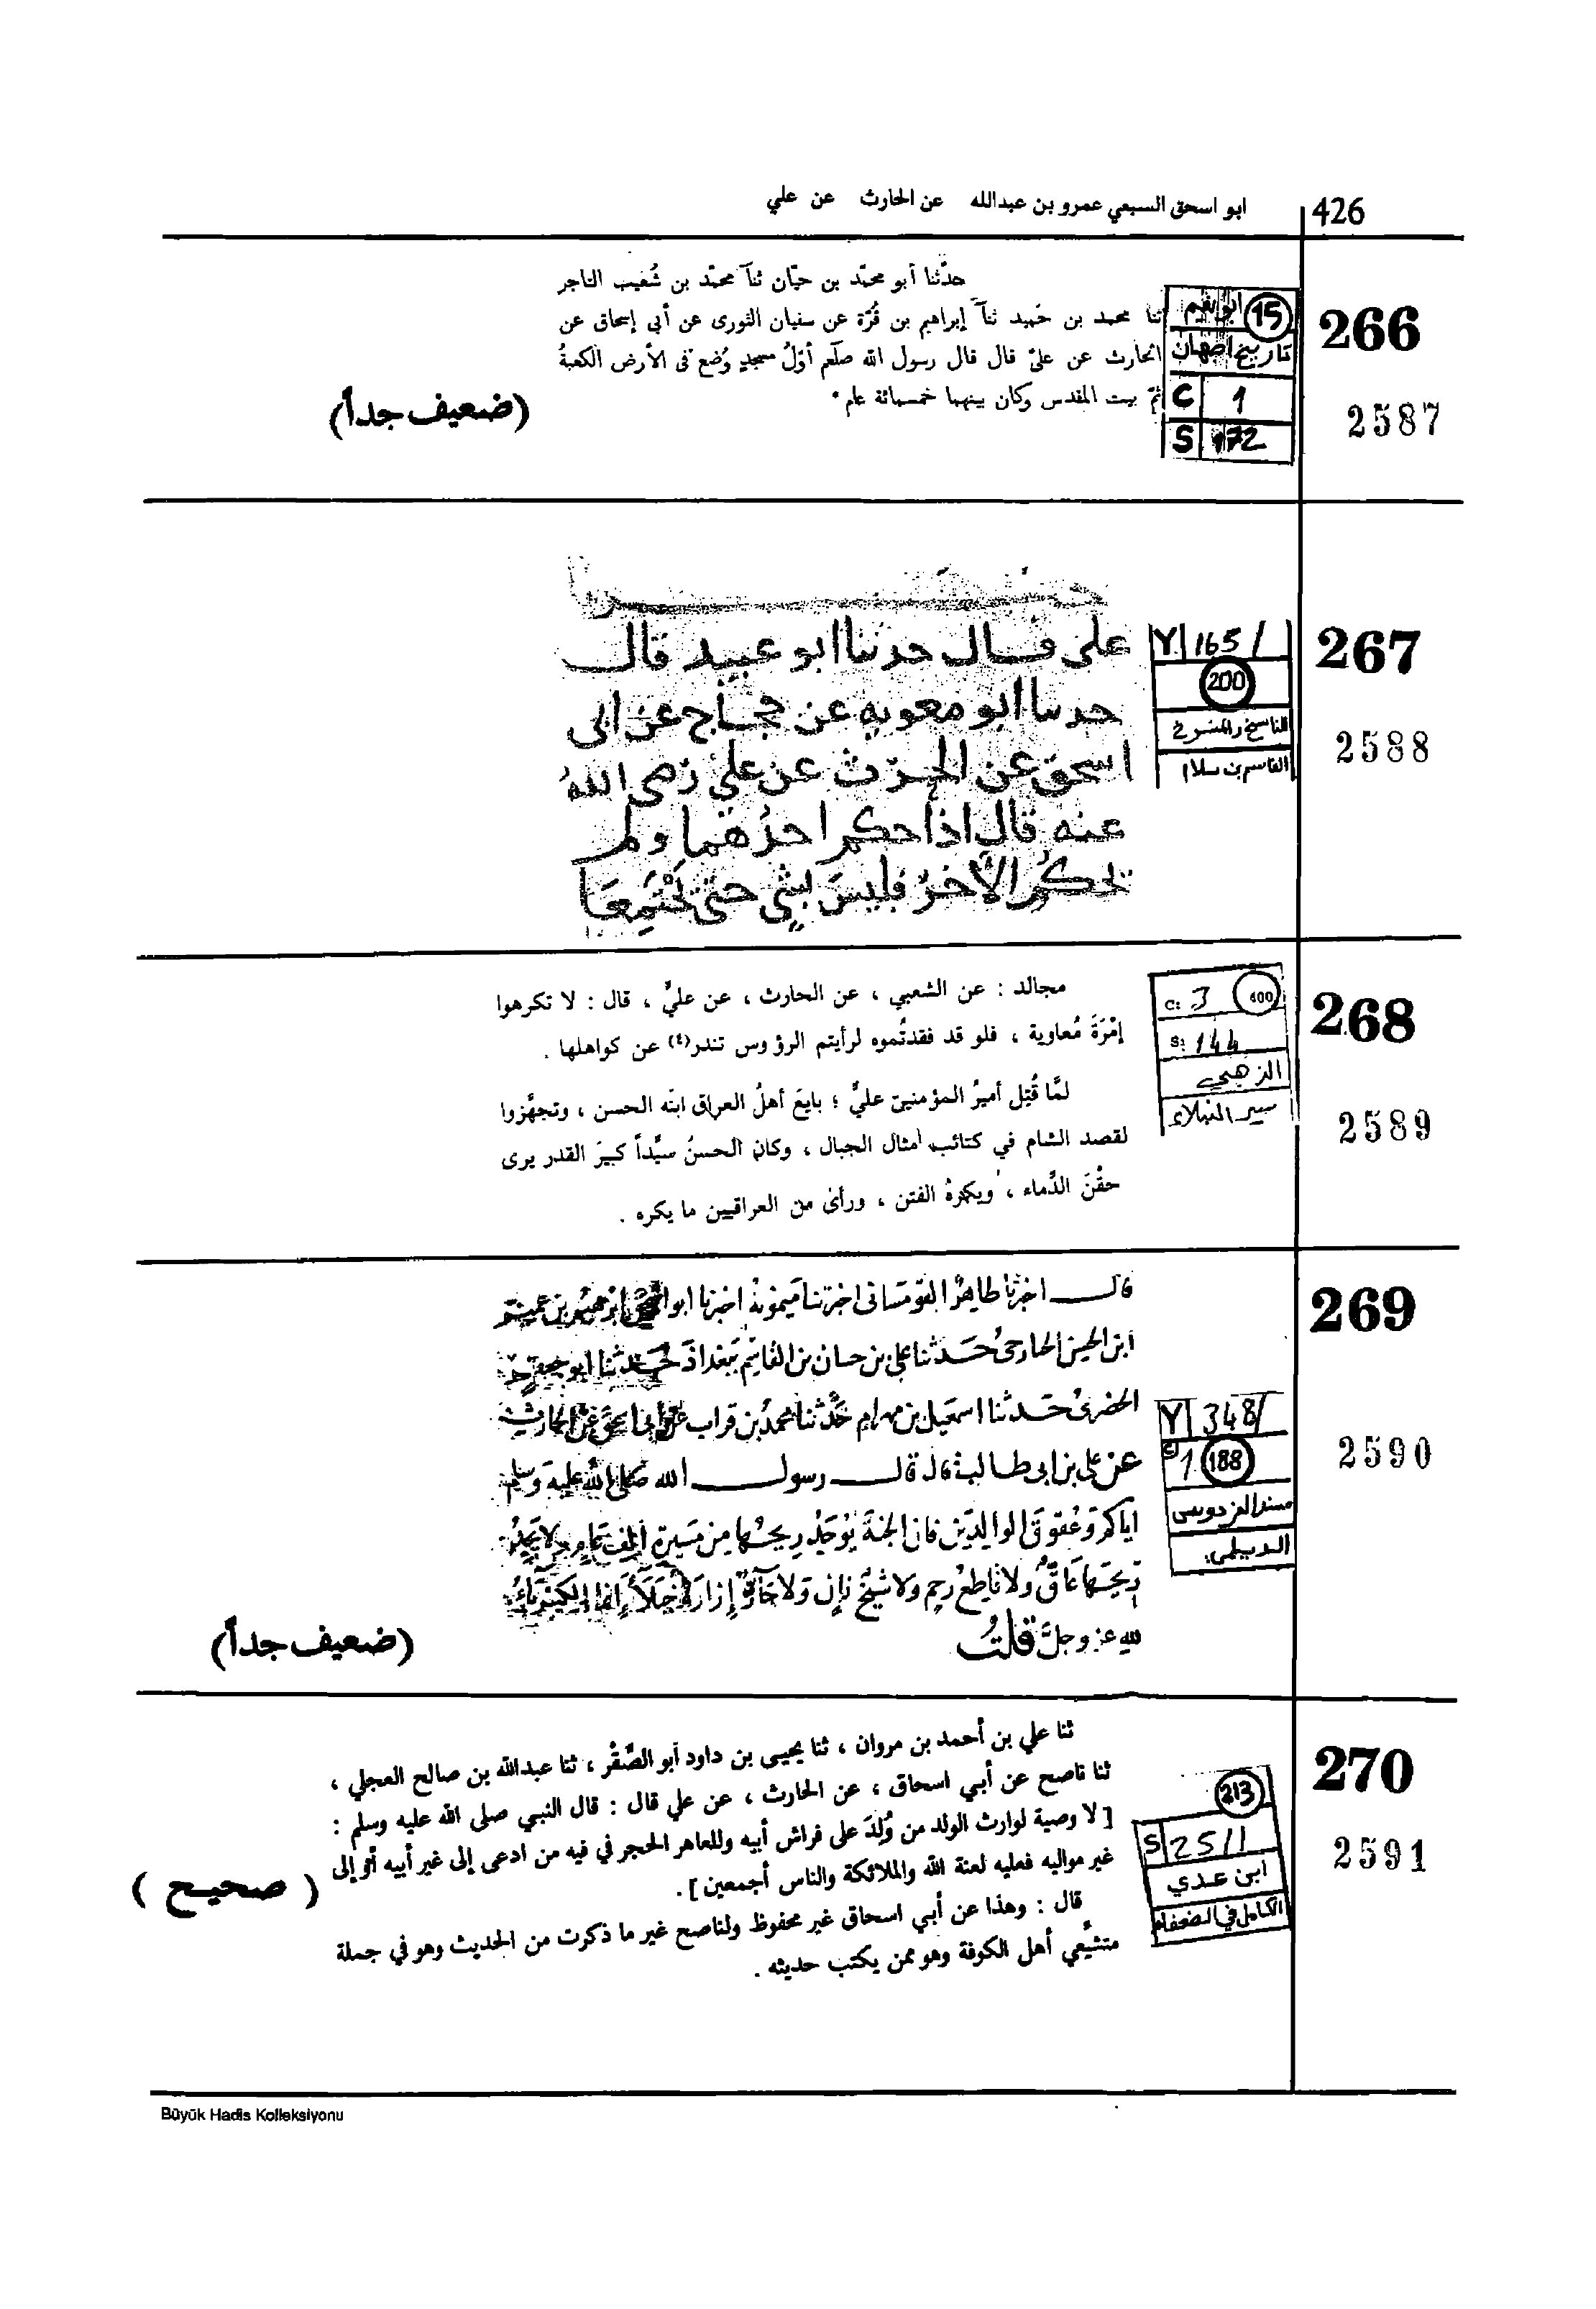 426 ابو اسحق السبعي عمرو بن عبدالله عن الحارث عن علي
266
2587
ابو نعيم 15
تاريخ اصبهان
C 1
S 172
حدّثنا أبو محمّد بن حيّان ثنآ محمّد بن شُعيب التاجر
ثنا محمد بن حَميد ثنآ إبراهيم بن قُرّة عن سفيان الثورى عن أبى إسحاق عن
الحارث عن علىّ قال قال رسول الله صلّعم أوّلُ مسجدٍ وُضع فى الأرض الكعبةُ
ثمّ بيت المقدس وكان بينهما خمسمائة عام٠
(ضعيف جداً)
267
2588
Y 165/
200
الناسخ والمنسوخ
القاسم بن سلام
على قال حدثنا ابو عبيد قال
حدثنا ابو معوية عن حجاج عن ابى
اسحق عن الحرث عن علي رضى اللهُ
عنه قال اذا حكم احدُهما ولم
يحكُم الآخرُ فليسَ بشي حتى يجتمِعَا
268
2589
C: 3 400
S: 144
الذهبي
سير النبلاء
مجالد : عن الشعبي ، عن الحارث ، عن عليٍّ ، قال : لا تكرهوا
إمْرَةَ مُعاوية ، فلو قد فقدتُموه لرأيتم الرؤوس تندر(٤) عن كواهلها .
لمَّا قُتِل أميرُ المؤمنين عليٌّ ؛ بايعَ أهلُ العراق ابنَه الحسن ، وتجهَّزوا
لقصد الشام في كتائب أمثال الجبال ، وكان الحسنُ سيِّداً كبيرَ القدر يرى
حقْنَ الدِّماء ، ويكرهُ الفتن ، ورأى من العراقيين ما يكره .
269
2590
Y 348/
C 1 188
مسند الفردوس
الديلمى
قال اخبرنا طاهرٌ القومسانى اخبرتنا ميمونة اخبرنا ابو
ابن الحسن الحارجى حدثنا على بن حسان بن القاسم ببغداذ حدثنا ابو جعفر
الحضرى حدثنا اسمعيل بن مهرام حدثنا محمد بن قراب عن ابى اسحق عن الحارث
عن على بن ابى طالب قال قال رسول الله صلى الله عليه وسلم
اياكم وعُقوق الوالدين فان الجنة يُوجَدُ ريحُها من مَسيرة الف عام ولا يجدُ
ريحَها عَاقٌّ ولا قاطعُ رحِم ولا شيخٌ زانٍ ولا جَارٌّ إزارَهُ خُيَلَاء إنما الكبرياءُ
لله عز وجلَّ قلتُ
(ضعيف جداً)
270
2591
213
S 2511
ابن عدي
الكامل في الضعفاء
ثنا علي بن أحمد بن مروان ، ثنا يحيى بن داود أبو الصَّقْر ، ثنا عبدالله بن صالح العجلي ،
ثنا ناصح عن أبي اسحاق ، عن الحارث ، عن علي قال : قال النبي صلى الله عليه وسلم :
[ لا وصية لوارث الولد من وُلِدَ على فراش أبيه وللعاهر الحجر في فيه من ادعى إلى غير أبيه أو إلى
غير مواليه فعليه لعنة الله والملائكة والناس أجمعين ] .
( صحيح )
قال : وهذا عن أبي اسحاق غير محفوظ ولناصح غير ما ذكرت من الحديث وهو في جملة
متشيِّعي أهل الكوفة وهو ممن يكتب حديثه .
Büyük Hadis Kolleksiyonu